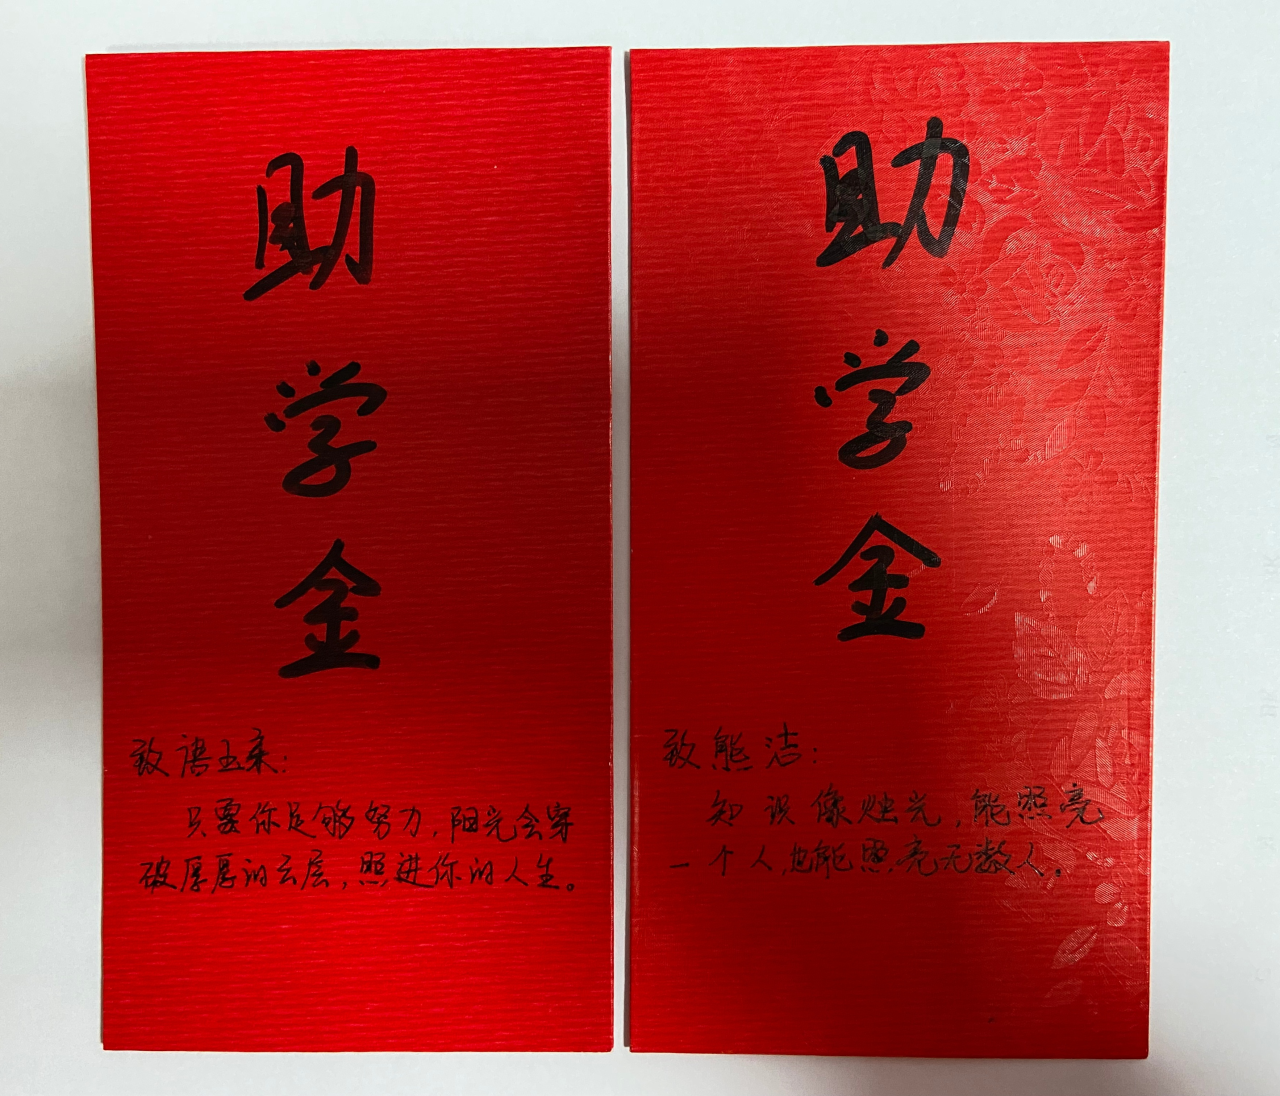 助
学
金
致语玉来:
只要你足够努力,阳光会穿
破厚厚的云层,照进你的人生。
助
学
金
致熊洁:
知识像烛光,能照亮
一个人,也能照亮无数人。